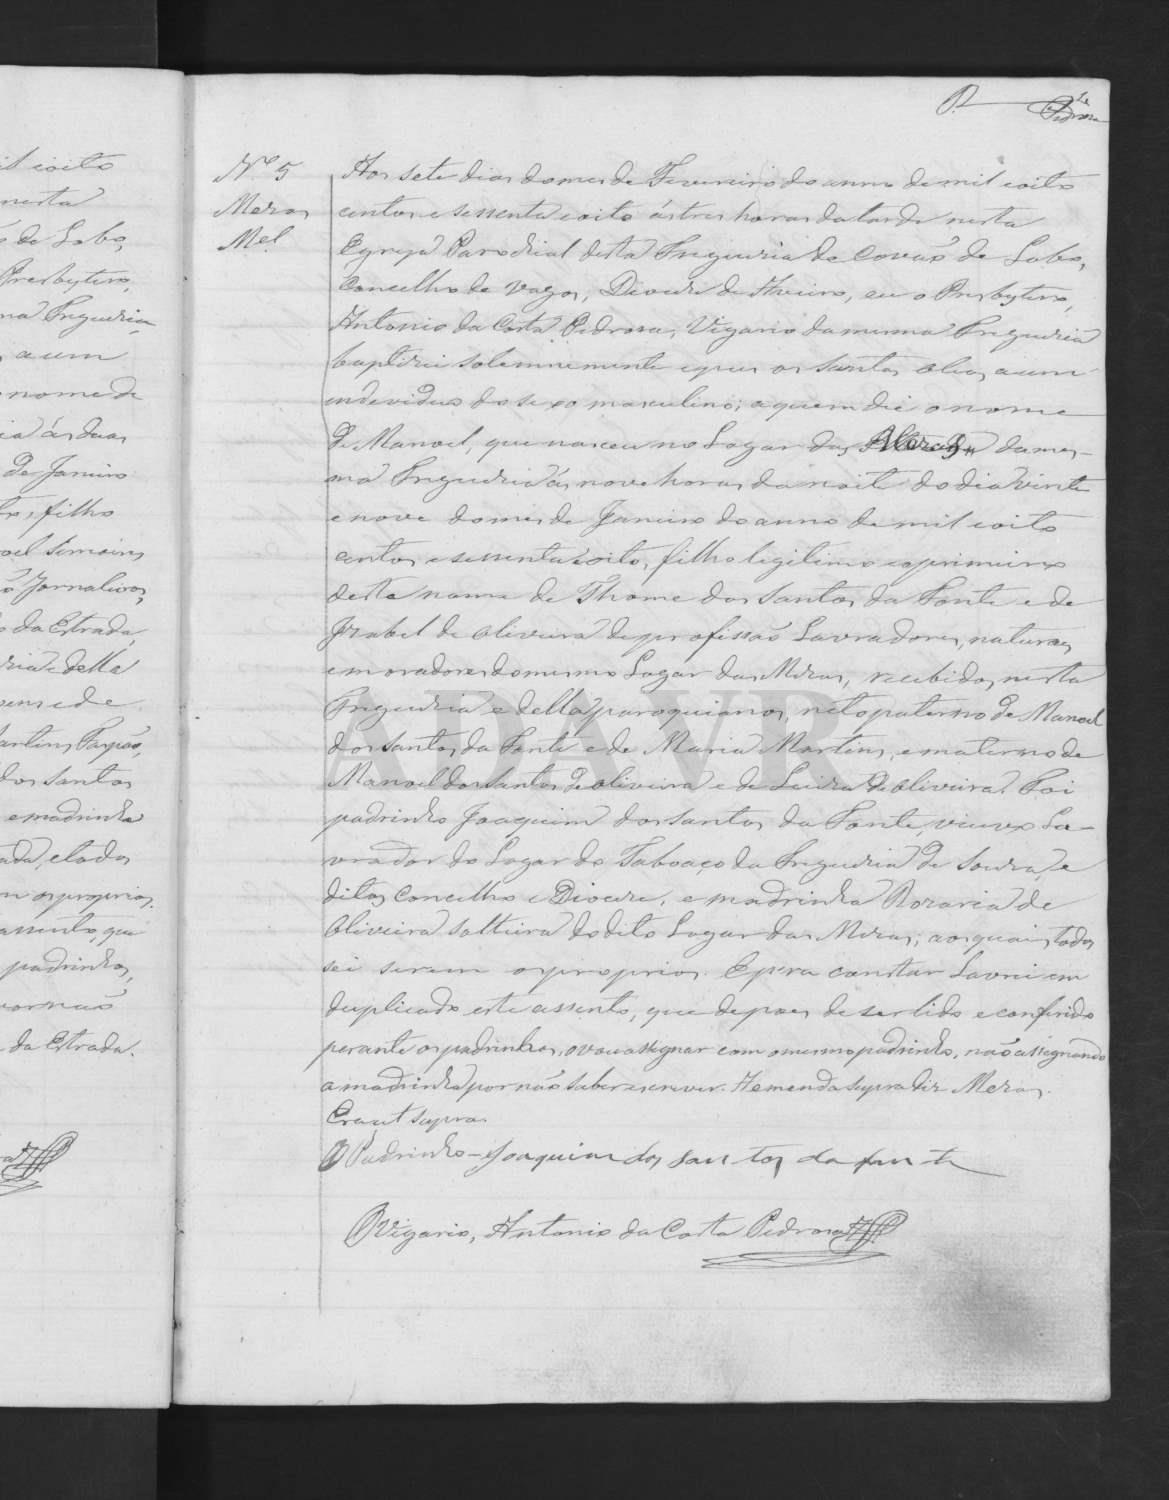 il e oito
nesta
de Lobo,
Presbytero,
ma Freguezia
a um
nome de
ia ás duas
de Janeiro
filho
oel Simoens
Jornaleiros,
da Estrada,
ria e della
e de
artins Papão,
dos Santos
e madrinha
ada, e todos
os proprios.
assento, que
padrinhos,
por não
da Estrada.
P. Pedroza
Nº 5
Mezas
Mel.
Aos sete dias do mes de Fevereiro do anno de mil e oito
centos e sessenta e oito ás tres horas da tarde nesta
Egreja Parochial desta Freguezia de Covão de Lobo,
Concelho de Vagos, Diocese de Aveiro, eu o Presbytero,
Antonio da Costa Pedroza, Vigario da mesma Freguezia
baptizei solemnemente e puz os Santos oleos a um
individuo do sexo masculino; a quem dei o nome
de Manoel, que nasceu no Logar das Mezas da mes-
ma Freguezia ás nove horas da noite do dia vinte
e nove do mes de Janeiro do anno de mil e oito
centos e sessenta e oito, filho legitimo e o primeiro
deste nome de Thome dos Santos da Fonte e de
Izabel de Oliveira de profissão Lavradores, naturaes
e moradores do mesmo Logar das Mezas, recebidos nesta
Freguezia e della paroquianos, neto paterno de Manoel
dos Santos da Fonte e de Maria Martins, e materno de
Manoel dos Santos de Oliveira e de Luiza de Oliveira. Foi
padrinho Joaquim dos Santos da Fonte, viuvo La-
vrador do Logar do Taboaço da Freguezia de Souza, e
ditos Concelho e Diocese, e madrinha Rozaria de
Oliveira solteira do dito Logar das Mezas; aos quais todos
sei serem os proprios. E para constar Lavrei em
duplicado este assento, que depoes de ser lido e conferido
perante os padrinhos, o vou assignar com o mesmo padrinho, não assignando
a madrinha por não saber escrever. A emenda supra diz Mezas.
Era ut supra.
O Padrinho - Joaquim dos santos da funte
O Vigario, Antonio da Costa Pedroza
ADAVR